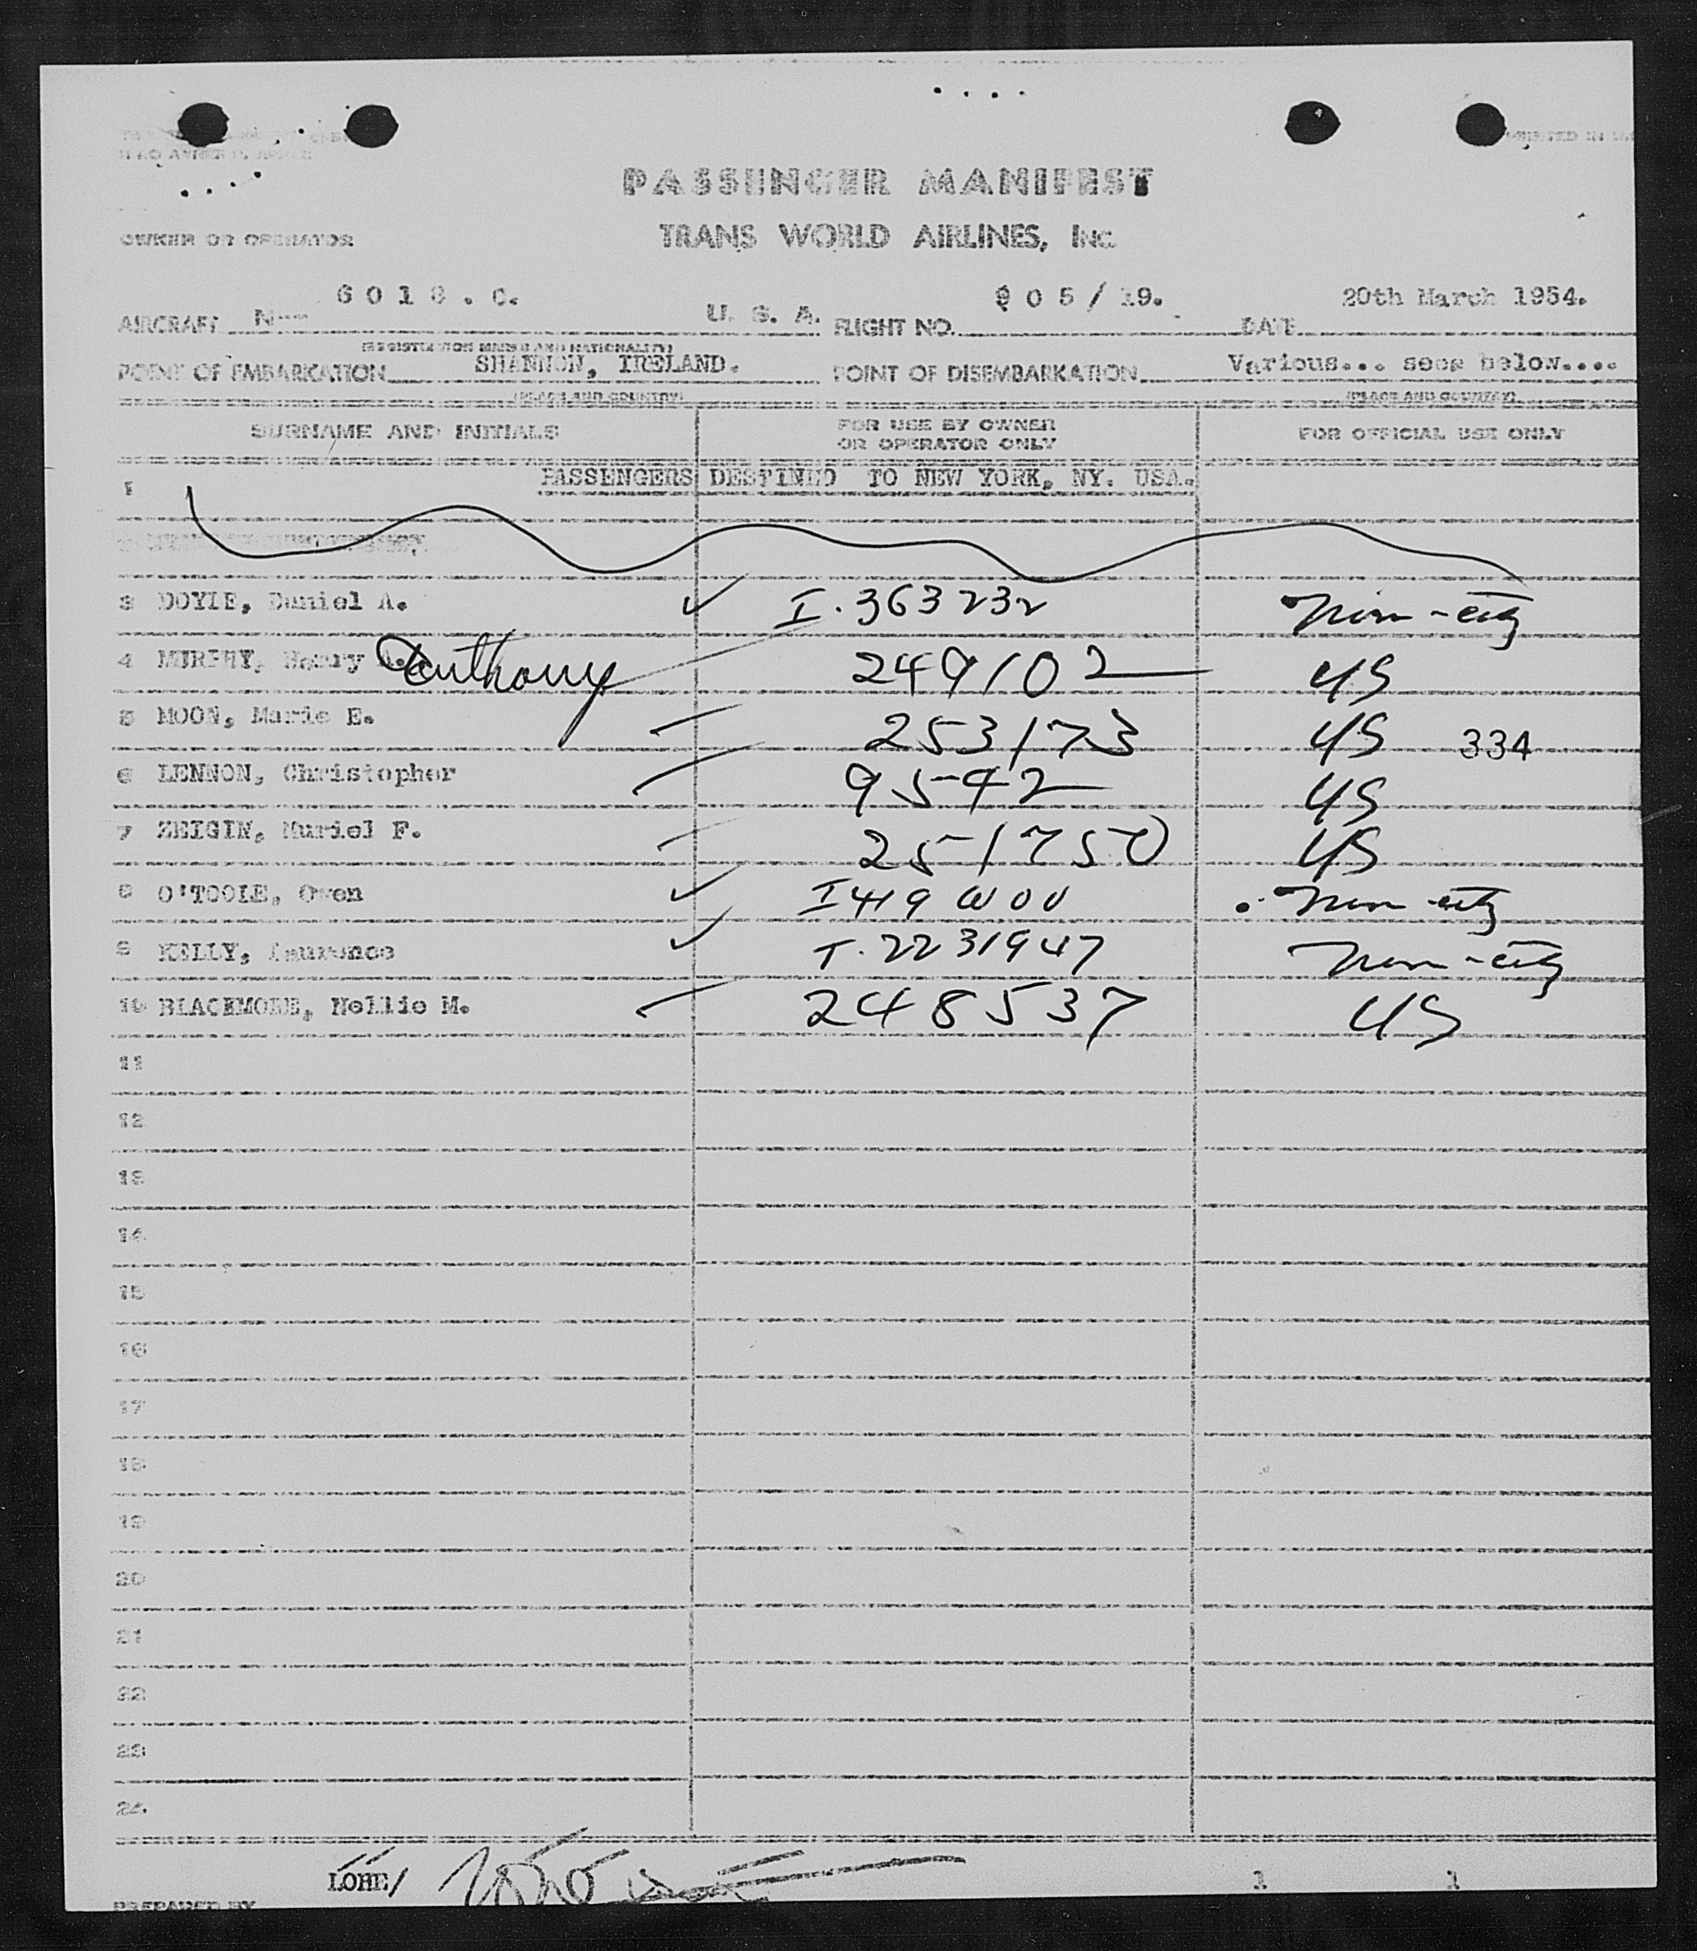 PASSENGER MANIFEST
OWNER OR OPERATOR TRANS WORLD AIRLINES, INC.
AIRCRAFT N 6018.C. U. S. A. FLIGHT NO. 905/19. DATE 20th March 1954.
(REGISTRATION MARKS AND NATIONALITY)
POINT OF EMBARKATION SHANNON, IRELAND. POINT OF DISEMBARKATION Various... sees below....
(PLACE AND COUNTRY) (PLACE AND COUNTRY)
SURNAME AND INITIALS FOR USE BY OWNER OR OPERATOR ONLY FOR OFFICIAL USE ONLY
1 PASSENGERS DESTINED TO NEW YORK, NY. USA.
3 DOYLE, Daniel A. ✓ I. 363232 Non-citz
4 MURPHY, Harry A. Anthony 249102 US
5 MOON, Marie E. 253173 US 334
6 LENNON, Christopher 9592 US
7 ZEIGIN, Muriel F. 251750 US
8 O'TOOLE, Owen ✓ I419 Non citz
9 KELLY, Laurence ✓ I. 2231947 Non-citz
10 BLACKMORE, Nellie M. 248537 US
11
12
13
14
15
16
17
18
19
20
21
22
23
24
LOHE/ 1 1
PREPARED BY